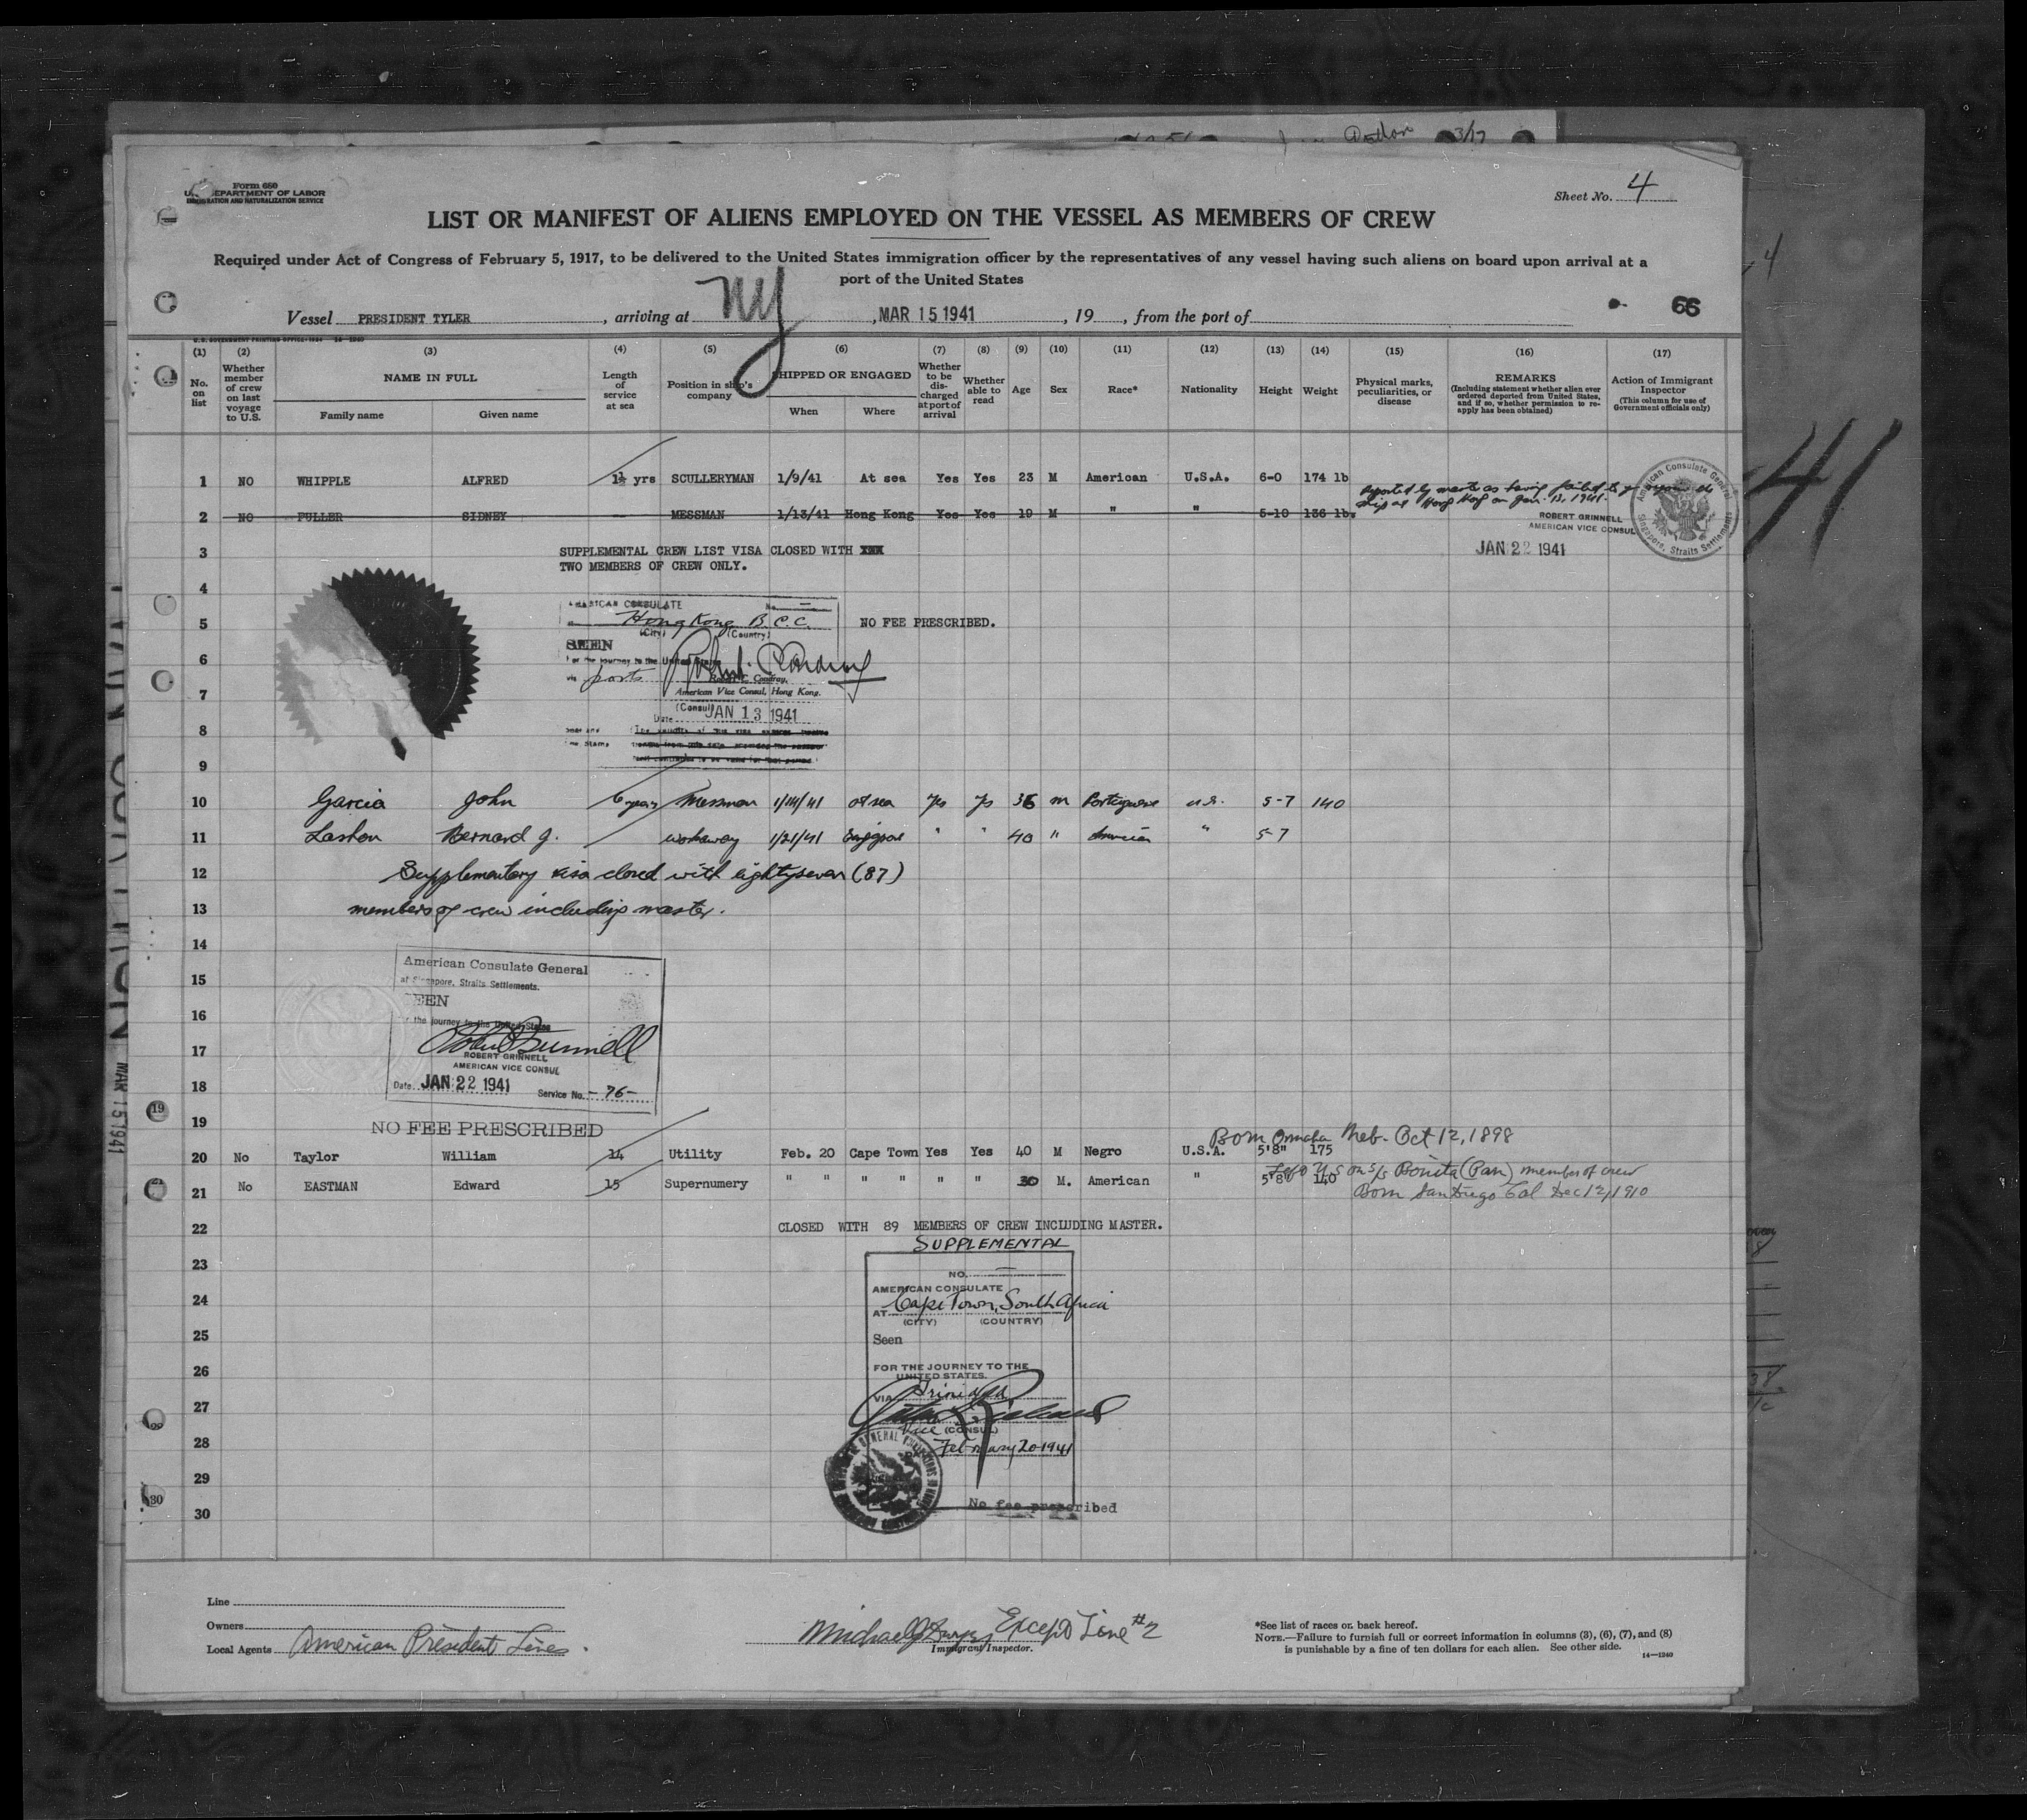 Form 650
DEPARTMENT OF LABOR
IMMIGRATION AND NATURALIZATION SERVICE
Sheet No. 4
LIST OR MANIFEST OF ALIENS EMPLOYED ON THE VESSEL AS MEMBERS OF CREW
Required under Act of Congress of February 5, 1917, to be delivered to the United States immigration officer by the representatives of any vessel having such aliens on board upon arrival at a
port of the United States
Vessel PRESIDENT TYLER, arriving at NY, MAR 15 1941, 19, from the port of
66
(1) (2) (3) (4) (5) (6) (7) (8) (9) (10) (11) (12) (13) (14) (15) (16) (17)
No. on list
Whether member of crew on last voyage to U.S.
NAME IN FULL
Family name Given name
Length of service at sea
Position in ship's company
SHIPPED OR ENGAGED
When Where
Whether to be discharged at port of arrival
Whether able to read
Age
Sex
Race*
Nationality
Height
Weight
Physical marks, peculiarities, or disease
REMARKS
(Including statement whether alien ever ordered deported from United States, and if so, whether permission to reapply has been obtained)
Action of Immigrant Inspector
(This column for use of Government officials only)
1 NO WHIPPLE ALFRED 1½ yrs SCULLERYMAN 1/9/41 At sea Yes Yes 23 M American U.S.A. 6-0 174 lb
reported by master as having failed to
ship at Hong Kong on Jan. 13, 1941.
2 NO FULLER SIDNEY MESSMAN 1/13/41 Hong Kong Yes Yes 19 M " " 5-10 136 lb.
ROBERT GRINNELL
AMERICAN VICE CONSUL
American Consulate General
Singapore, Straits Settlements
JAN 22 1941
3 SUPPLEMENTAL CREW LIST VISA CLOSED WITH XXX
TWO MEMBERS OF CREW ONLY.
4
AMERICAN CONSULATE No.
5 Hong Kong B.C.C. NO FEE PRESCRIBED.
(City) (Country)
SEEN
6 For the journey to the United States
via ports
7 American Vice Consul, Hong Kong.
(Consul)
Date JAN 13 1941
8
9
10 Garcia John 6 years Messman 1/14/41 at sea Yes Yes 36 m Portuguese U.S. 5-7 140
11 Lashon Bernard J. workaway 1/21/41 Singapore " " 40 " American " 5-7
12 Supplementary visa closed with eightyseven (87)
13 members of crew including master.
14
American Consulate General
15 at Singapore, Straits Settlements.
EEN
16 the journey to the United States
17 ROBERT GRINNELL
AMERICAN VICE CONSUL
18 Date JAN 22 1941 Service No. - 76 -
19 NO FEE PRESCRIBED
Born Omaha Neb. Oct 12, 1898
20 No Taylor William 14 Utility Feb. 20 Cape Town Yes Yes 40 M Negro U.S.A. 5'8" 175
Left US on s/s Bonita (Pan) member of crew
21 No EASTMAN Edward 15 Supernumery " " " " " " 30 M. American " 5'8" 140
Born San Diego Cal Dec 12, 1910
22 CLOSED WITH 89 MEMBERS OF CREW INCLUDING MASTER.
SUPPLEMENTAL
23 NO.
AMERICAN CONSULATE
24 AT Cape Town, South Africa
(CITY) (COUNTRY)
25 Seen
26 FOR THE JOURNEY TO THE
UNITED STATES.
VIA Trinidad
27
Vice (CONSUL)
28 February 20 1941
29
No fee prescribed
30
MAR 15 1941
41
Line
Owners
Local Agents American President Lines.
Except Line #2
Immigrant Inspector.
*See list of races on back hereof.
NOTE.—Failure to furnish full or correct information in columns (3), (6), (7), and (8)
is punishable by a fine of ten dollars for each alien. See other side.
14—1240